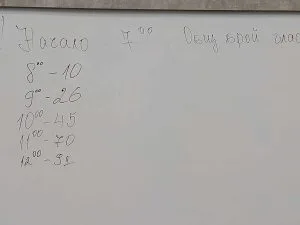 Начало 7⁰⁰ Общ брой
8⁰⁰ - 10
9⁰⁰ - 26
10⁰⁰ - 45
11⁰⁰ - 70
12⁰⁰ -